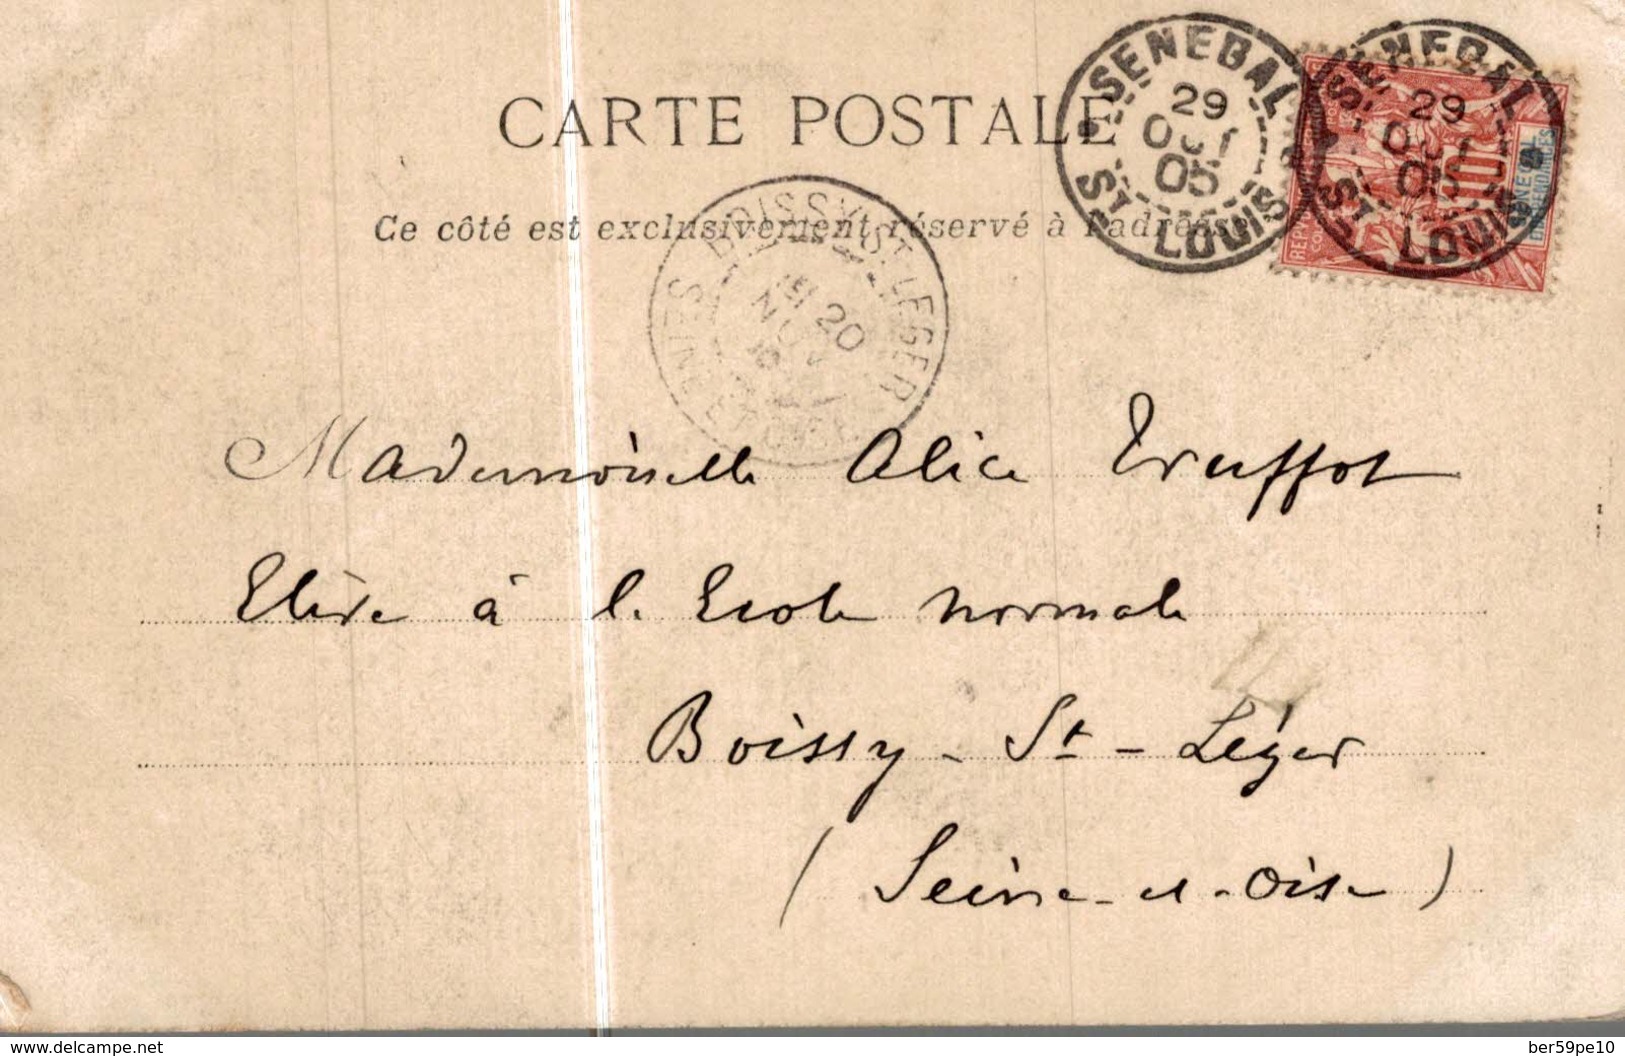 CARTE POSTALE
Ce côté est exclusivement réservé à l'adresse
SENEGAL
29
OCT
05
ST LOUIS
SENEGAL
29
OCT
05
ST LOUIS
10
GUINÉE
DÉPENDANCES
BOISSY ST LEGER
20
NOV
SEINE ET OISE
Mademoiselle Alice Truffot
Elève à l. Ecole normale
Boissy - St - Léger
( Seine - et - Oise )
www.delcampe.net
ber59pe10